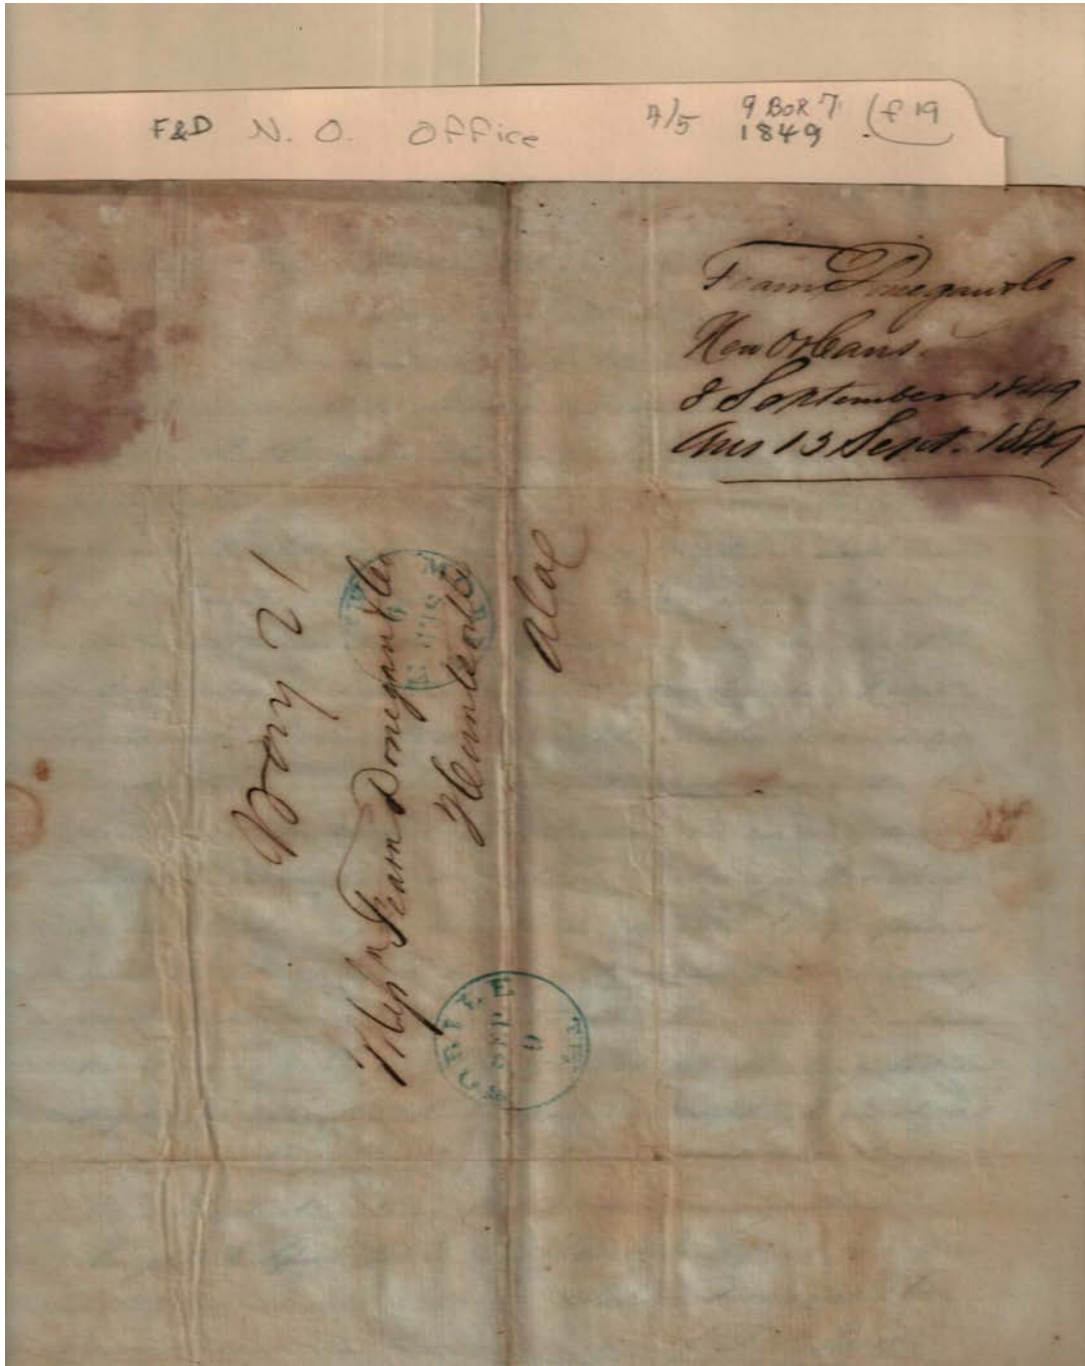 F&D N. O. Office 9 BOX 7 (f 19
1849
Fearn Donegan & Co
New Orleans
8 September 1849
Ans 13 Sept. 1849
Mess Fearn Donegan & Co
Huntsville
Ala
MOBILE
SEP
9